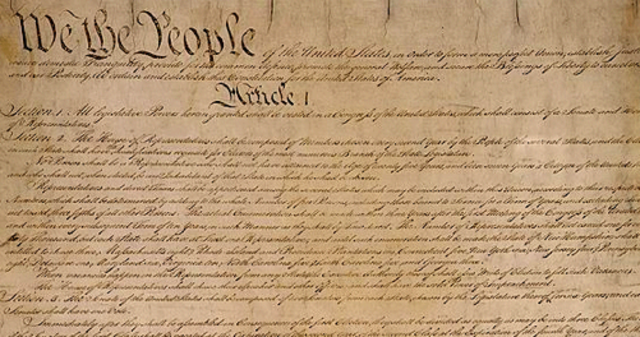 We the People of the United States, in Order to form a more perfect Union, establish
insure domestic Tranquility, provide for the common defence, promote the general Welfare, and secure the Blessings of Liberty to
and our Posterity, do ordain and establish this Constitution for the United States of America.
Article I
Section 1 All legislative Powers herein granted shall be vested in a Congress of the United States, which shall consist of a Senate and
of Representatives.
Section 2. The House of Representatives shall be composed of Members chosen every second Year by the People of the several States, and the
in each State shall have the Qualifications requisite for Electors of the most numerous Branch of the State Legislature.
No Person shall be a Representative who shall not have attained to the Age of twenty five Years, and been seven Years a Citizen of the United
and who shall not, when elected, be an Inhabitant of that State in which he shall be chosen.
Representatives and direct Taxes shall be apportioned among the several States which may be included within this Union, according to their
Numbers, which shall be determined by adding to the whole Number of free Persons, including those bound to Service for a Term of Years, and excluding
not taxed, three fifths of all other Persons. The actual Enumeration shall be made within three Years after the first Meeting of the Congress of the
and within every subsequent Term of ten Years, in such Manner as they shall by Law direct. The Number of Representatives shall not exceed one for
thirty Thousand, but each State shall have at Least one Representative; and until such enumeration shall be made, the State of New Hampshire shall
entitled to chuse three, Massachusetts eight, Rhode Island and Providence Plantations one, Connecticut five, New York six, New Jersey four,
eight, Delaware one, Maryland six, Virginia ten, North Carolina five, South Carolina five, and Georgia three.
When vacancies happen in the Representation from any State, the Executive Authority thereof shall issue Writs of Election to fill such Vacancies.
The House of Representatives shall chuse their Speaker and other Officers; and shall have the sole Power of Impeachment.
Section 3. The Senate of the United States shall be composed of two Senators from each State, chosen by the Legislature thereof, for six Years; and
Senator shall have one Vote.
Immediately after they shall be assembled in Consequence of the first Election, they shall be divided as equally as may be into three Classes.